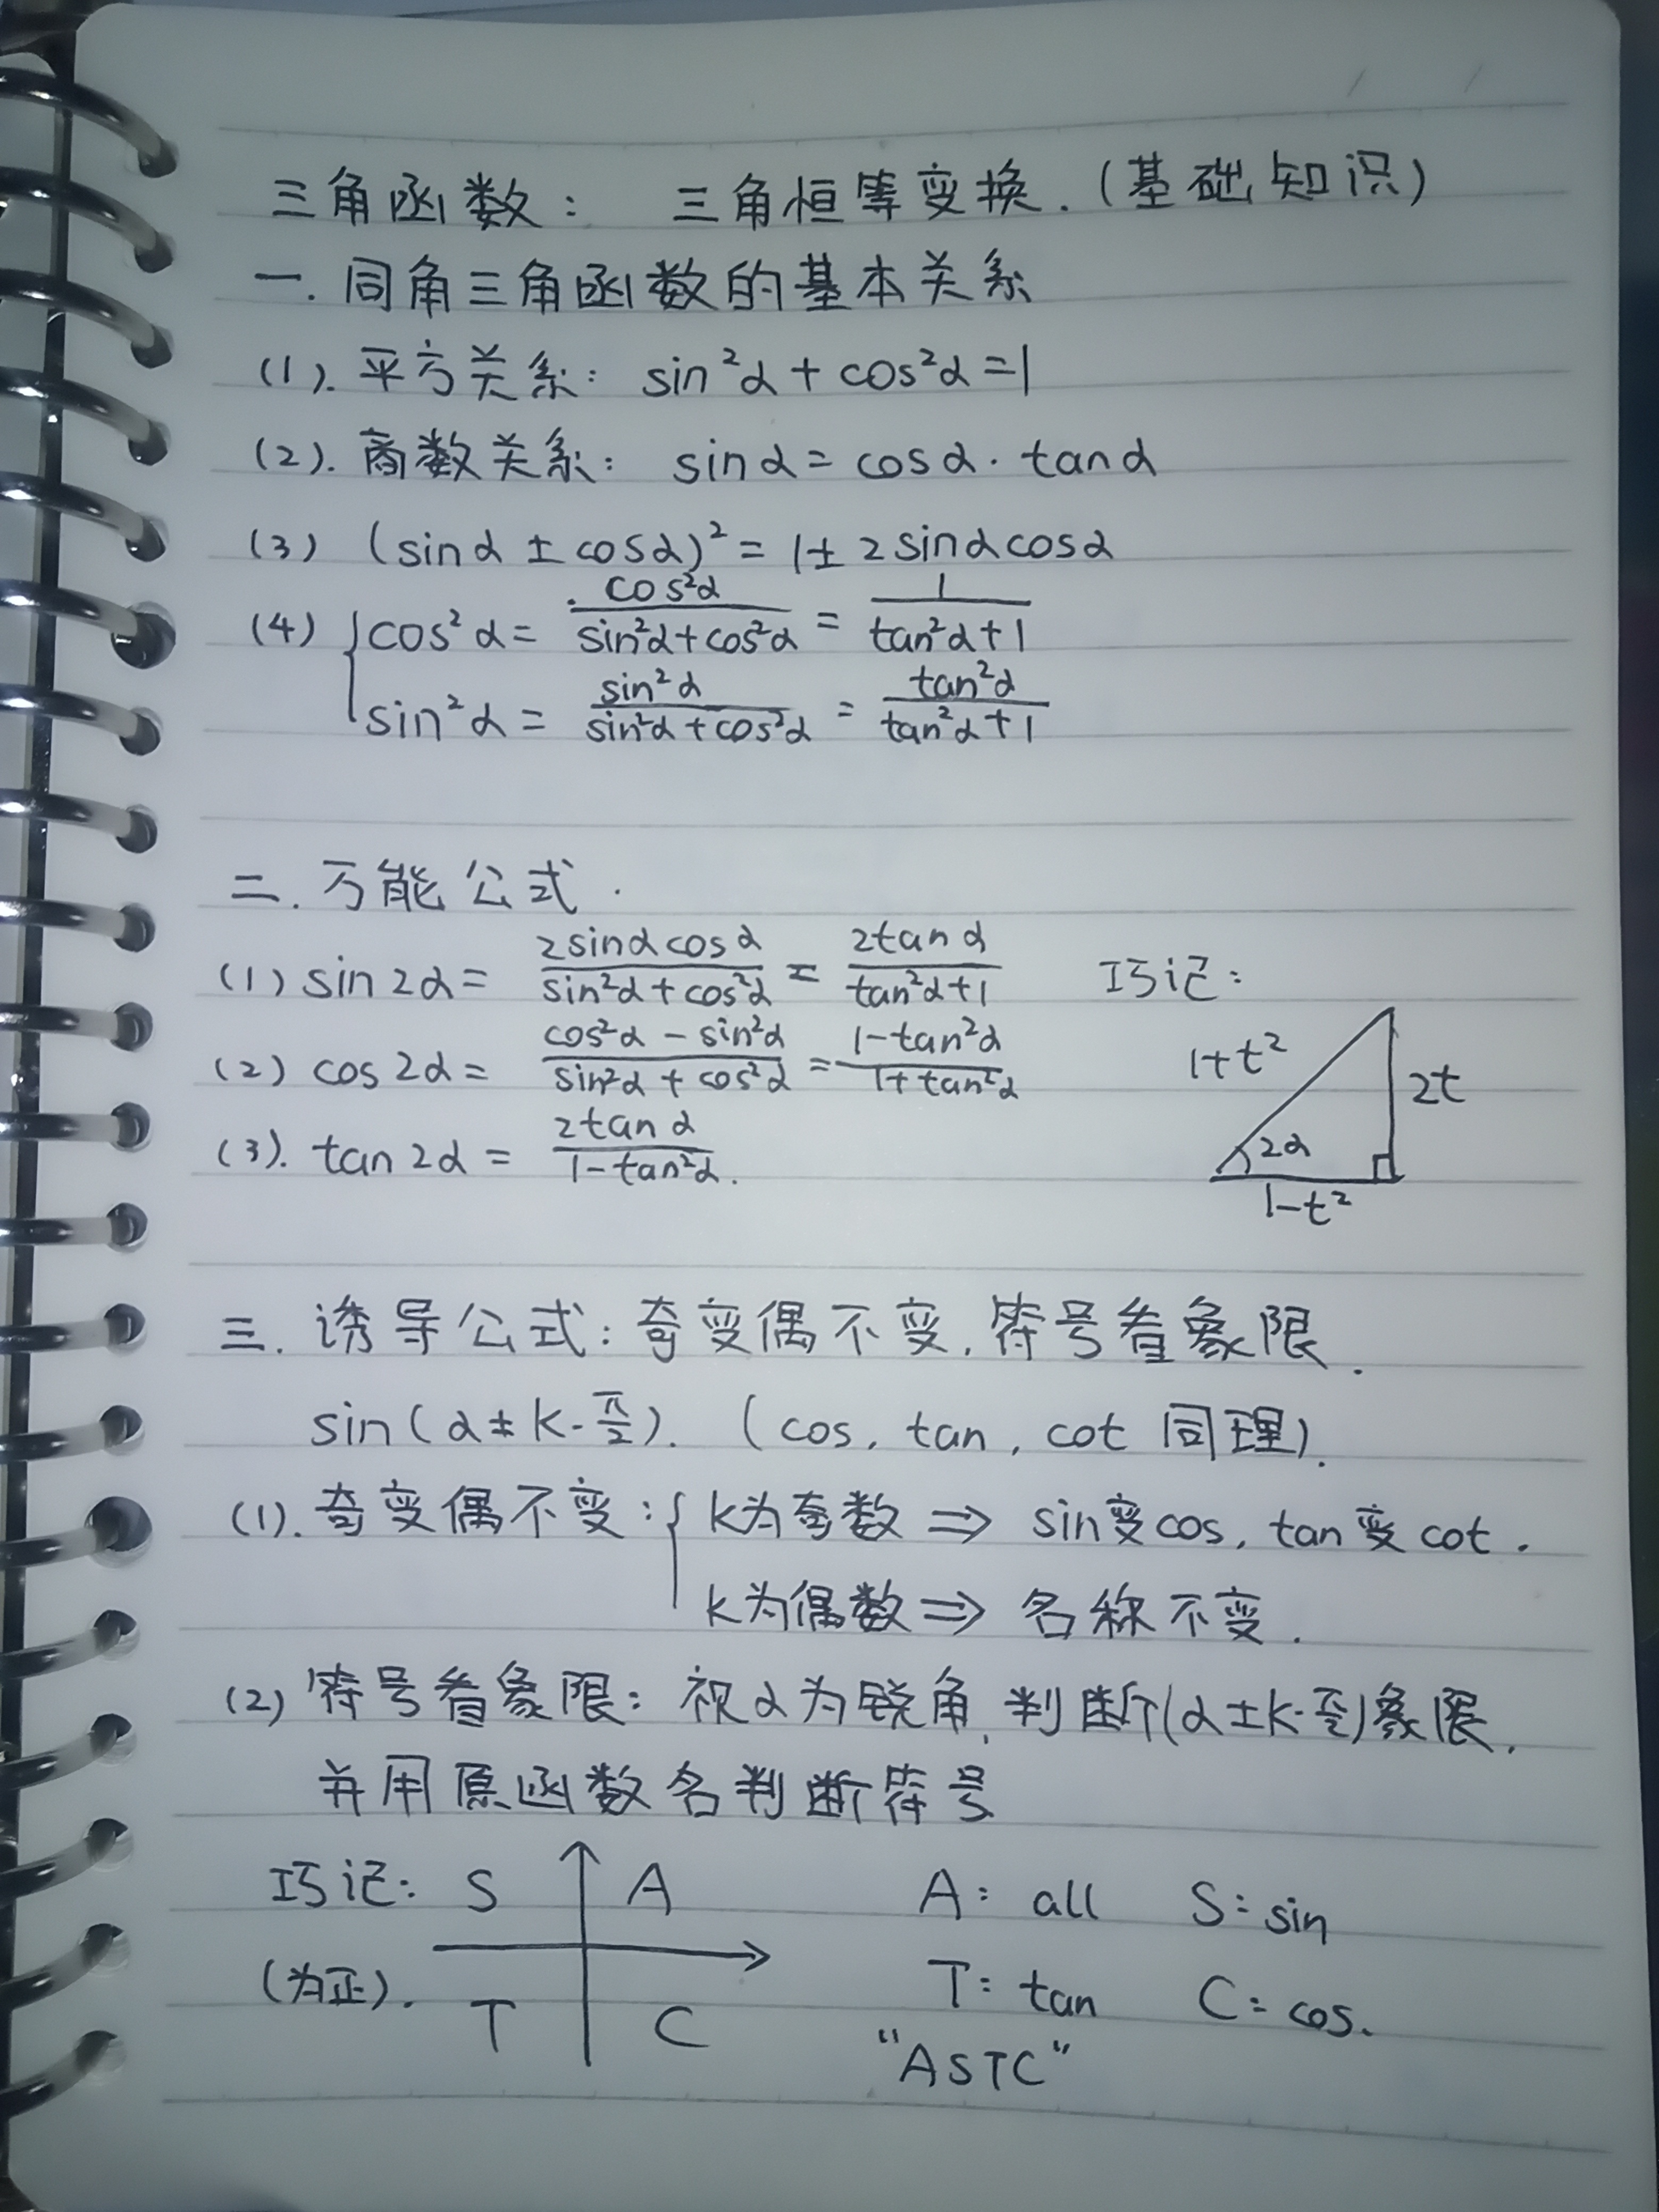 三角函数: 三角恒等变换.(基础知识)
一.同角三角函数的基本关系
(1).平方关系: sin²α+cos²α=1
(2).商数关系: sinα=cosα·tanα
(3) (sinα±cosα)²=1±2sinαcosα
(4) { cos²α= cos²α/(sin²α+cos²α) = 1/(tan²α+1)
sin²α= sin²α/(sin²α+cos²α) = tan²α/(tan²α+1)
二.万能公式.
(1) sin2α= 2sinαcosα/(sin²α+cos²α) = 2tanα/(tan²α+1)
(2) cos2α= (cos²α-sin²α)/(sin²α+cos²α) = (1-tan²α)/(1+tan²α)
(3). tan2α= 2tanα/(1-tan²α).
巧记:
1+t²
2t
2α
1-t²
三.诱导公式:奇变偶不变,符号看象限.
sin(α±k·π/2). (cos, tan, cot 同理).
(1).奇变偶不变:{ k为奇数⇒ sin变cos, tan变cot.
k为偶数⇒ 名称不变.
(2) 符号看象限: 视α为锐角,判断(α±k·π/2)象限,
并用原函数名判断符号
巧记: S A
(为正). T C
A: all S: sin
T: tan C: cos.
"ASTC"